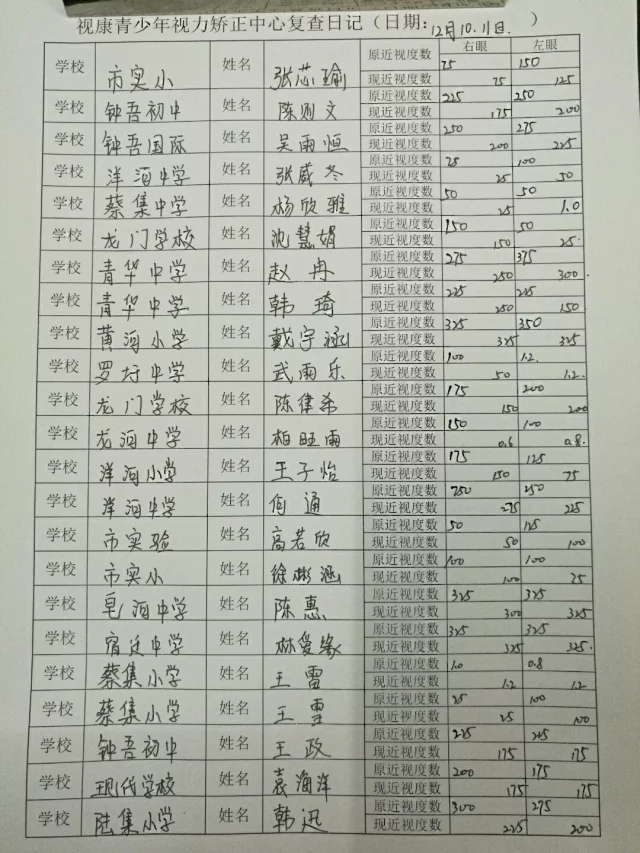 视康青少年视力矫正中心复查日记（日期：12月10.11日.）
学校 市实小 姓名 张芯瑜 右眼 左眼
原近视度数 75 150
现近视度数 75 125
学校 钟吾初中 姓名 陈则文 原近视度数 225 250
现近视度数 175 200
学校 钟吾国际 姓名 吴雨恒 原近视度数 250 275
现近视度数 200 225
学校 洋河中学 姓名 张威冬 原近视度数 75 100
现近视度数 25 50
学校 蔡集中学 姓名 杨欣雅 原近视度数 50 50
现近视度数 25 1.0
学校 龙门学校 姓名 沈慧娟 原近视度数 150 50
现近视度数 150 25.
学校 青华中学 姓名 赵冉 原近视度数 275 375
现近视度数 250 300.
学校 青华中学 姓名 韩琦 原近视度数 225 225
现近视度数 250 150
学校 黄河小学 姓名 戴宇涵 原近视度数 325 350
现近视度数 325 325
学校 罗圩中学 姓名 武雨乐 原近视度数 100 1.2.
现近视度数 50 1.2.
学校 龙门学校 姓名 陈律希 原近视度数 175 200
现近视度数 150 200
学校 龙河中学 姓名 柏旺雨 原近视度数 150 100
现近视度数 0.6 0.8.
学校 洋河小学 姓名 王子怡 原近视度数 175 125
现近视度数 150 75
学校 洋河中学 姓名 通 原近视度数 250
现近视度数 275 225
学校 市实验 姓名 高若欣 原近视度数 50 125
现近视度数 50 100
学校 市实小 姓名 徐彬涵 原近视度数 100 100
现近视度数 100 75
学校 皂河中学 姓名 陈惠 原近视度数 325 325
现近视度数 300 325
学校 宿迁中学 姓名 林爱缘 原近视度数 325 325
现近视度数 325 325.
学校 蔡集小学 姓名 王雷 原近视度数 1.0 0.8
现近视度数 1.2 1.2
学校 蔡集小学 姓名 王雪 原近视度数 25 100
现近视度数 25 100
学校 钟吾初中 姓名 王政 原近视度数 225 225
现近视度数 175 175
学校 现代学校 姓名 袁海洋 原近视度数 200 175
现近视度数 175 175
学校 陆集小学 姓名 韩迅 原近视度数 300 275
现近视度数 225 200